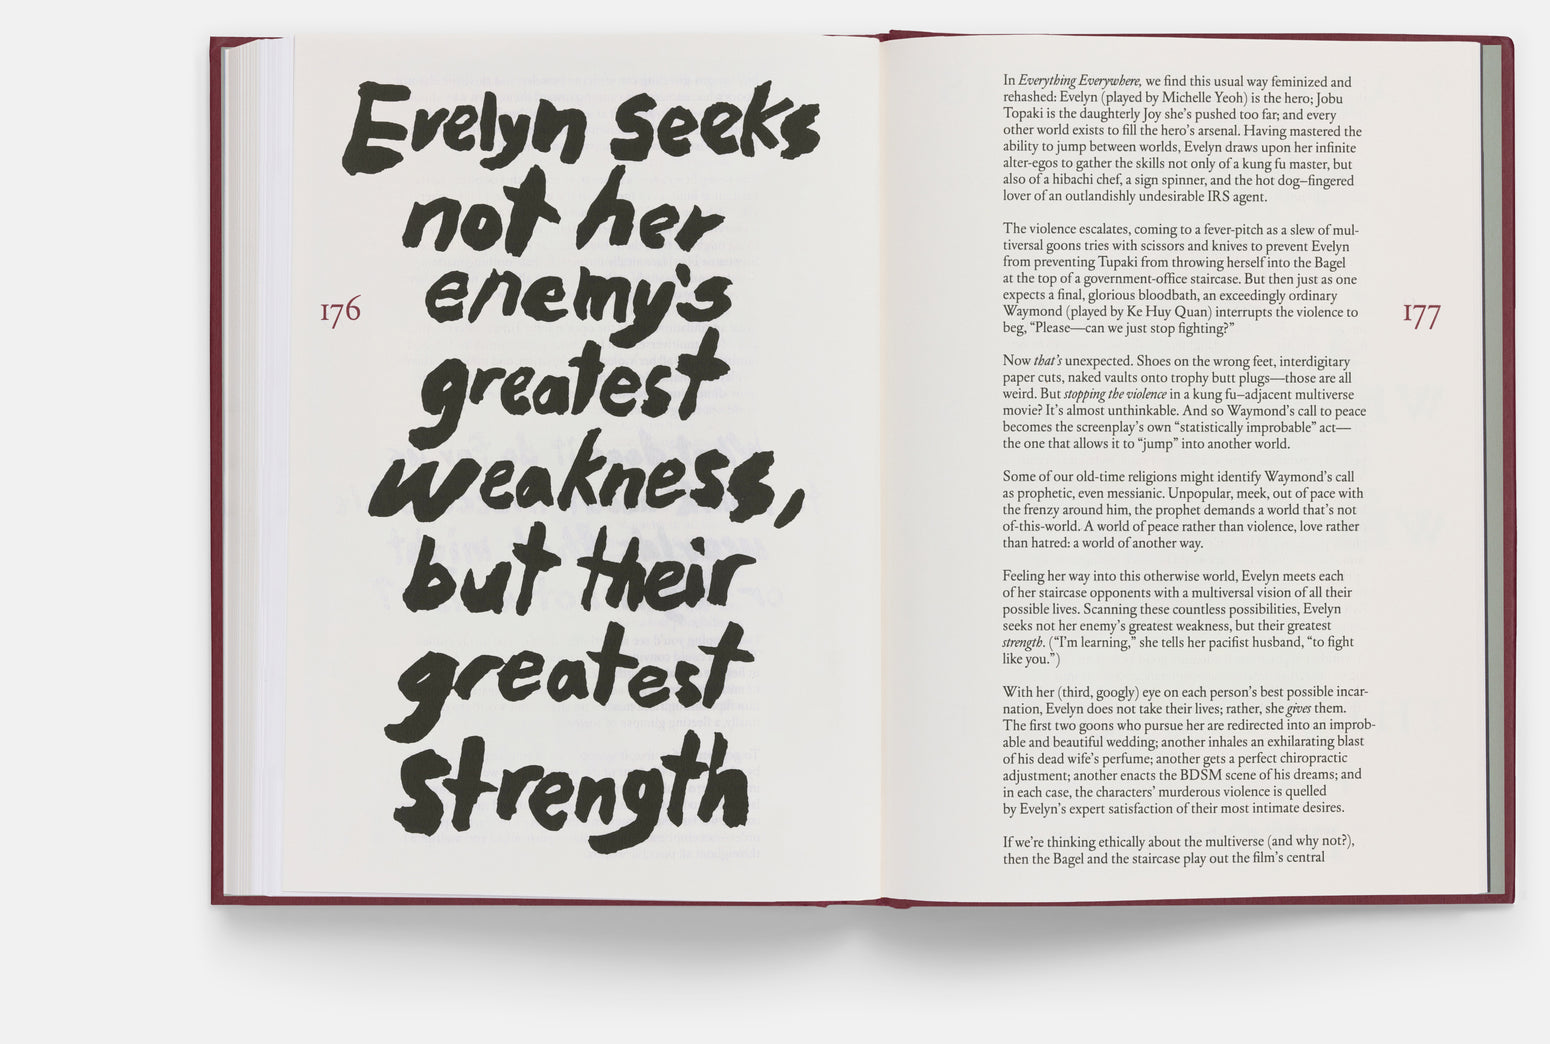 Evelyn seeks
not her
enemy's
greatest
weakness,
but their
greatest
strength
176
In Everything Everywhere, we find this usual way feminized and
rehashed: Evelyn (played by Michelle Yeoh) is the hero; Jobu
Topaki is the daughterly Joy she's pushed too far; and every
other world exists to fill the hero's arsenal. Having mastered the
ability to jump between worlds, Evelyn draws upon her infinite
alter-egos to gather the skills not only of a kung fu master, but
also of a hibachi chef, a sign spinner, and the hot dog–fingered
lover of an outlandishly undesirable IRS agent.
The violence escalates, coming to a fever-pitch as a slew of mul-
tiversal goons tries with scissors and knives to prevent Evelyn
from preventing Tupaki from throwing herself into the Bagel
at the top of a government-office staircase. But then just as one
expects a final, glorious bloodbath, an exceedingly ordinary
Waymond (played by Ke Huy Quan) interrupts the violence to
beg, “Please—can we just stop fighting?”
Now that's unexpected. Shoes on the wrong feet, interdigitary
paper cuts, naked vaults onto trophy butt plugs—those are all
weird. But stopping the violence in a kung fu–adjacent multiverse
movie? It's almost unthinkable. And so Waymond's call to peace
becomes the screenplay's own “statistically improbable” act—
the one that allows it to “jump” into another world.
Some of our old-time religions might identify Waymond's call
as prophetic, even messianic. Unpopular, meek, out of pace with
the frenzy around him, the prophet demands a world that's not
of-this-world. A world of peace rather than violence, love rather
than hatred: a world of another way.
Feeling her way into this otherwise world, Evelyn meets each
of her staircase opponents with a multiversal vision of all their
possible lives. Scanning these countless possibilities, Evelyn
seeks not her enemy's greatest weakness, but their greatest
strength. (“I'm learning,” she tells her pacifist husband, “to fight
like you.”)
With her (third, googly) eye on each person's best possible incar-
nation, Evelyn does not take their lives; rather, she gives them.
The first two goons who pursue her are redirected into an improb-
able and beautiful wedding; another inhales an exhilarating blast
of his dead wife's perfume; another gets a perfect chiropractic
adjustment; another enacts the BDSM scene of his dreams; and
in each case, the characters' murderous violence is quelled
by Evelyn's expert satisfaction of their most intimate desires.
If we're thinking ethically about the multiverse (and why not?),
then the Bagel and the staircase play out the film's central
177